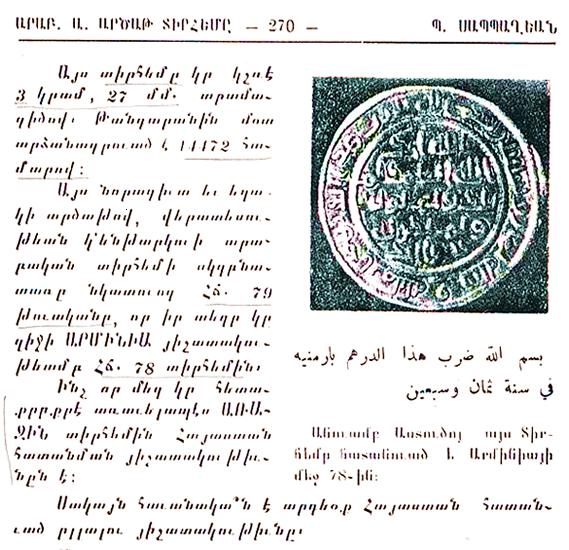 ԱՐԱԲ. Ա. ԱՐԾԱԹ ՏԻՐՀԵՄԸ — 270 — Պ. ՍԱՊՊԱՂԵԱՆ
Այս տիրհեմը կը կշռէ
3 կրամ, 27 մմ. տրամա-
գիծով։ Թանգարանին մօտ
արձանագրուած է 14472 հա-
մարով։
Այս նորագիւտ եւ եզա-
կի արծաթով, վերատեսու-
թեան կ'ենթարկուի արա-
բական տիրհեմի սկզբնա-
տառը նկատուող Հճ. 79
թուականը, որ իր տեղը կը
զիջի ԱՐՄԻՆԻԱ յիշատակու-
թեամբ Հճ. 78 տիրհեմին։
Ինչ որ մեզ կը հետա-
քրքրէ առաւելապէս ԱՌԱ-
ՋԻՆ տիրհեմին Հայաստան
հատանման յիշատակութիւ-
նըն է։
بسم الله ضرب هذا الدرهم بارمنيه
في سنة ثمان وسبعين
Անուամբ Աստուծոյ այս Տիր-
հեմը հատանուած է Արմինիայի
մէջ 78-ին։
Սակայն հաւանակա՞ն է արդեօք Հայաստան հատան-
ուած ըլլալու յիշատակութիւնը։